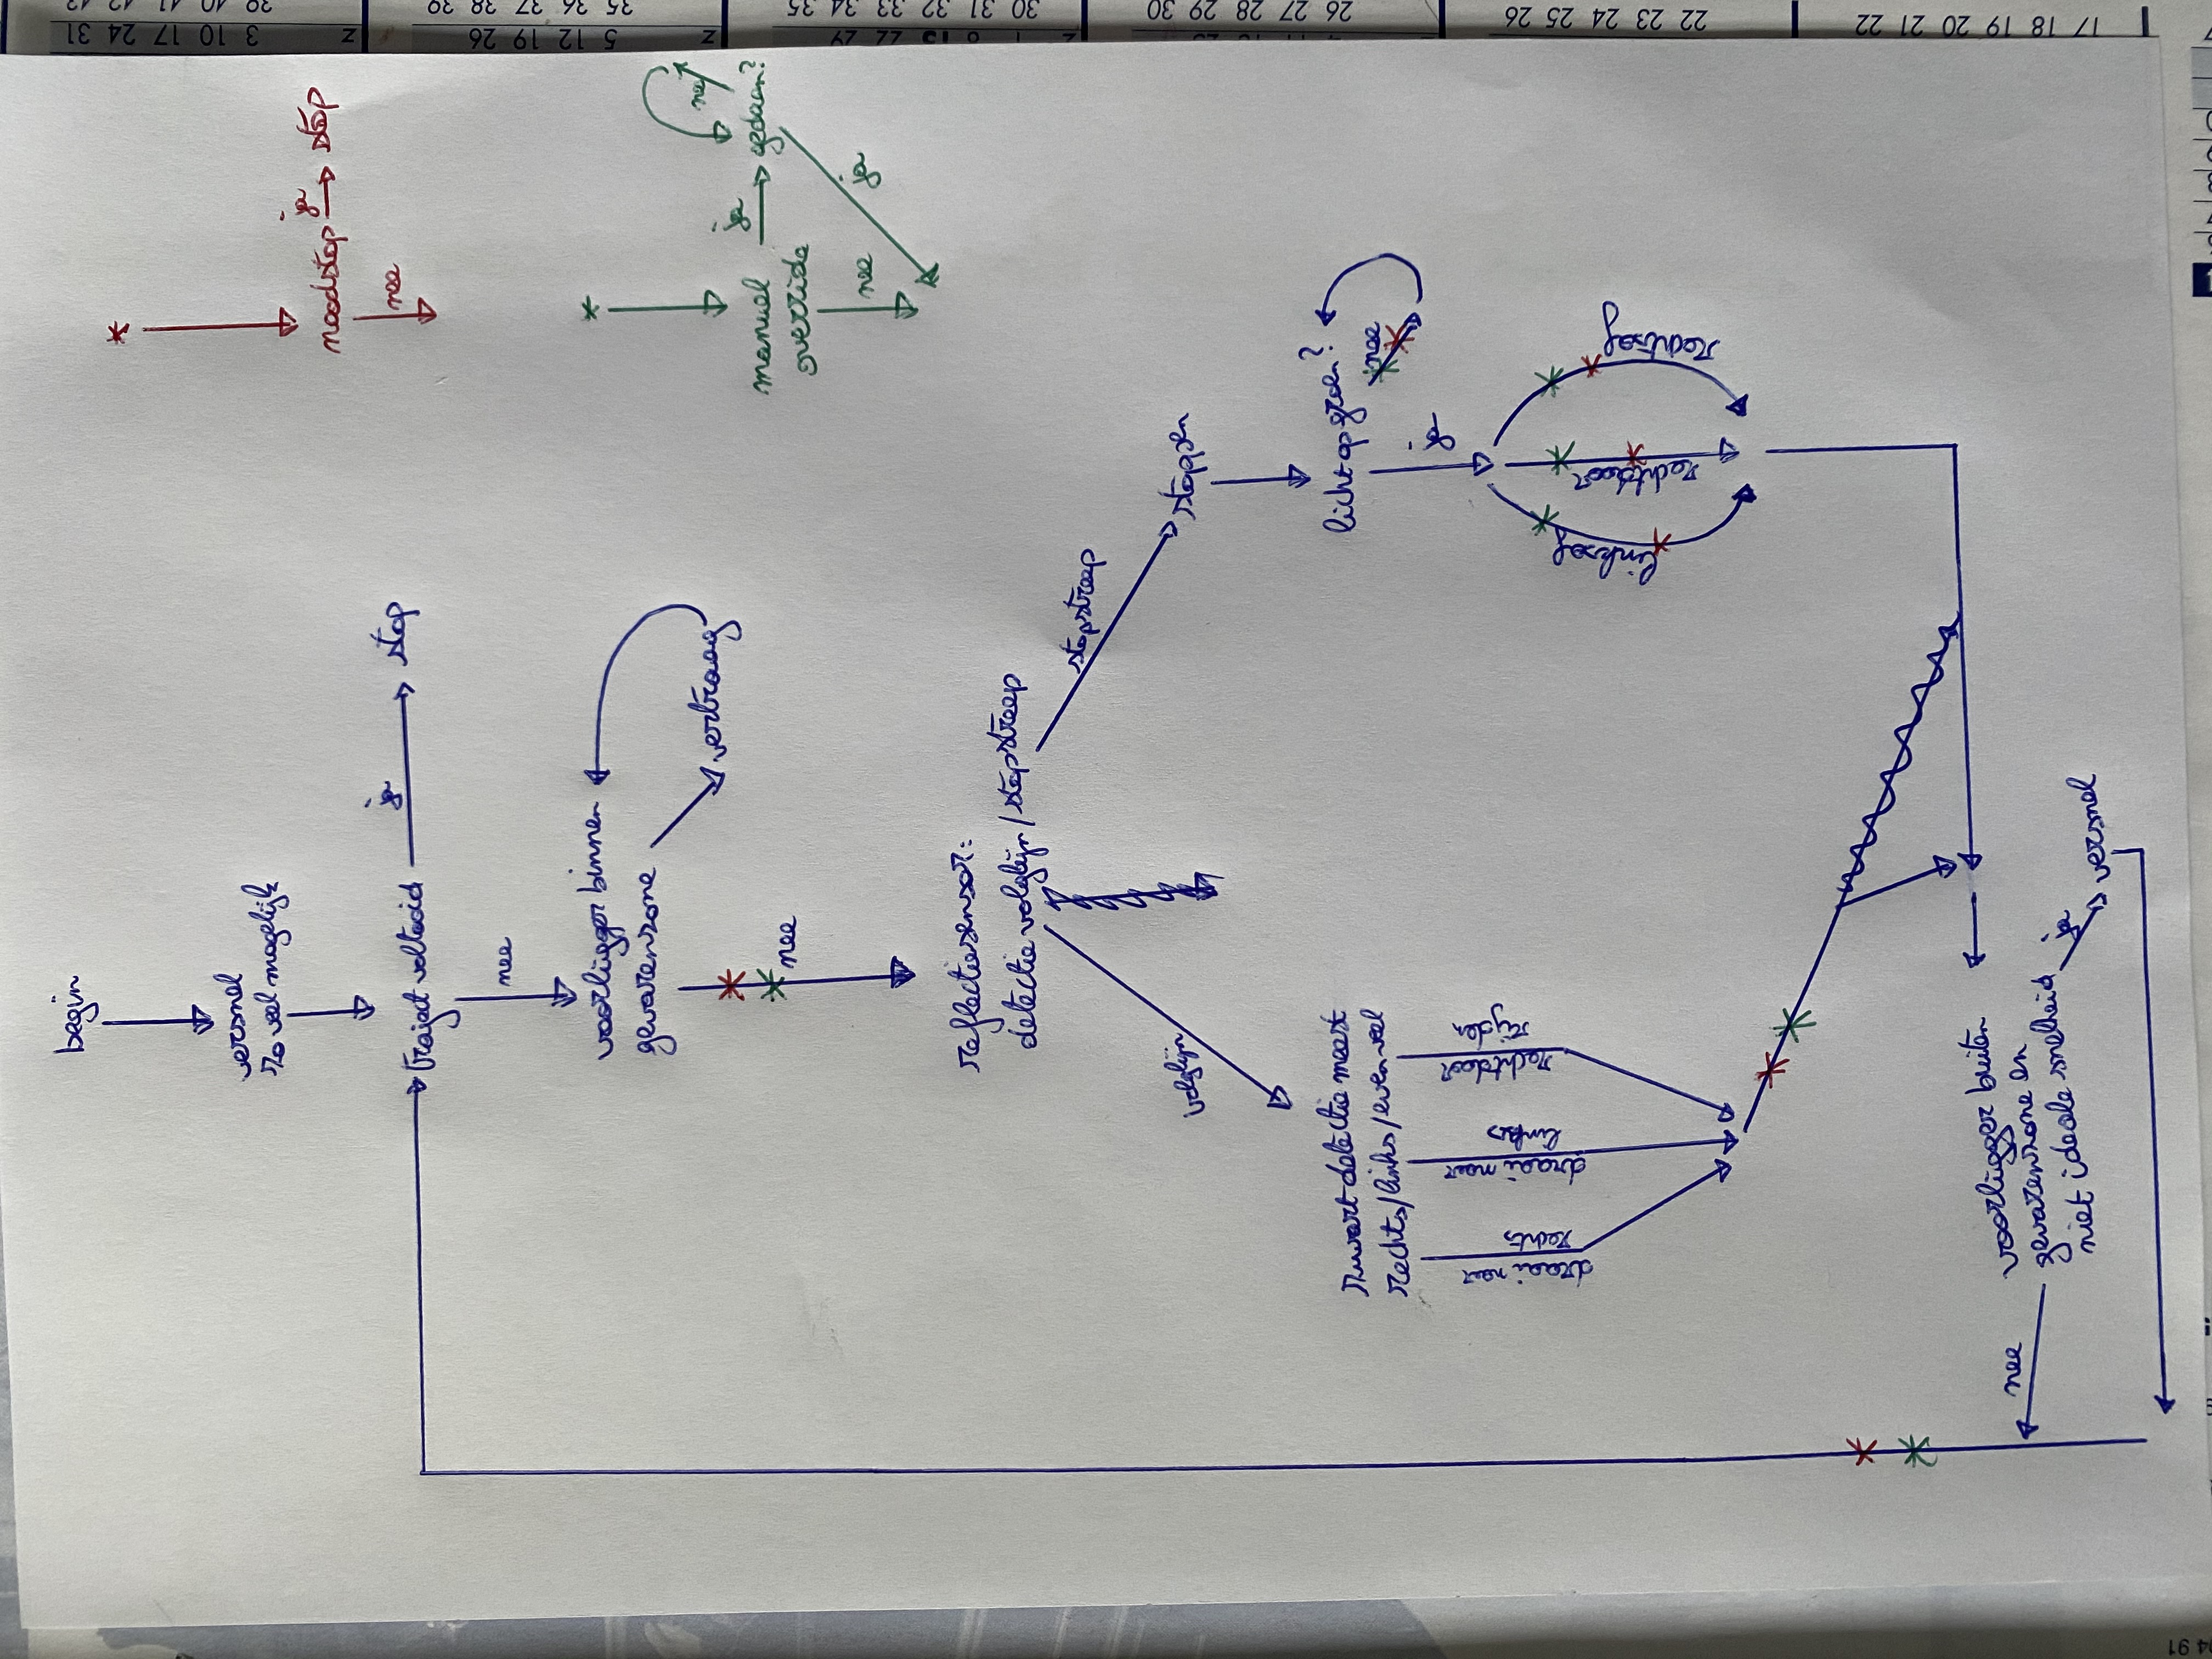 begin
versnel
zo veel mogelijk
traject voltooid
ja
stop
nee
voorligger binnen
gevarenzone
vertraag
nee
reflectiesensor:
detectie volglijn/stopstreep
volglijn
stopstreep
zwart detectie meest
rechts/links/evenveel
draai naar
rechts
draai naar
links
rechtdoor
rijden
stoppen
licht op groen?
nee
ja
linksaf
rechtdoor
rechtsaf
voorligger buiten
gevarenzone en
niet ideale snelheid
nee
ja
versnel
*
noodstop
ja
stop
nee
*
manual
override
ja
gedaan?
nee
nee
ja
3 10 17 24 31
z
5 12 19 26
z
35 36 37 38 39
30 31 32 33 34 35
26 27 28 29 30
22 23 24 25 26
17 18 19 20 21 22